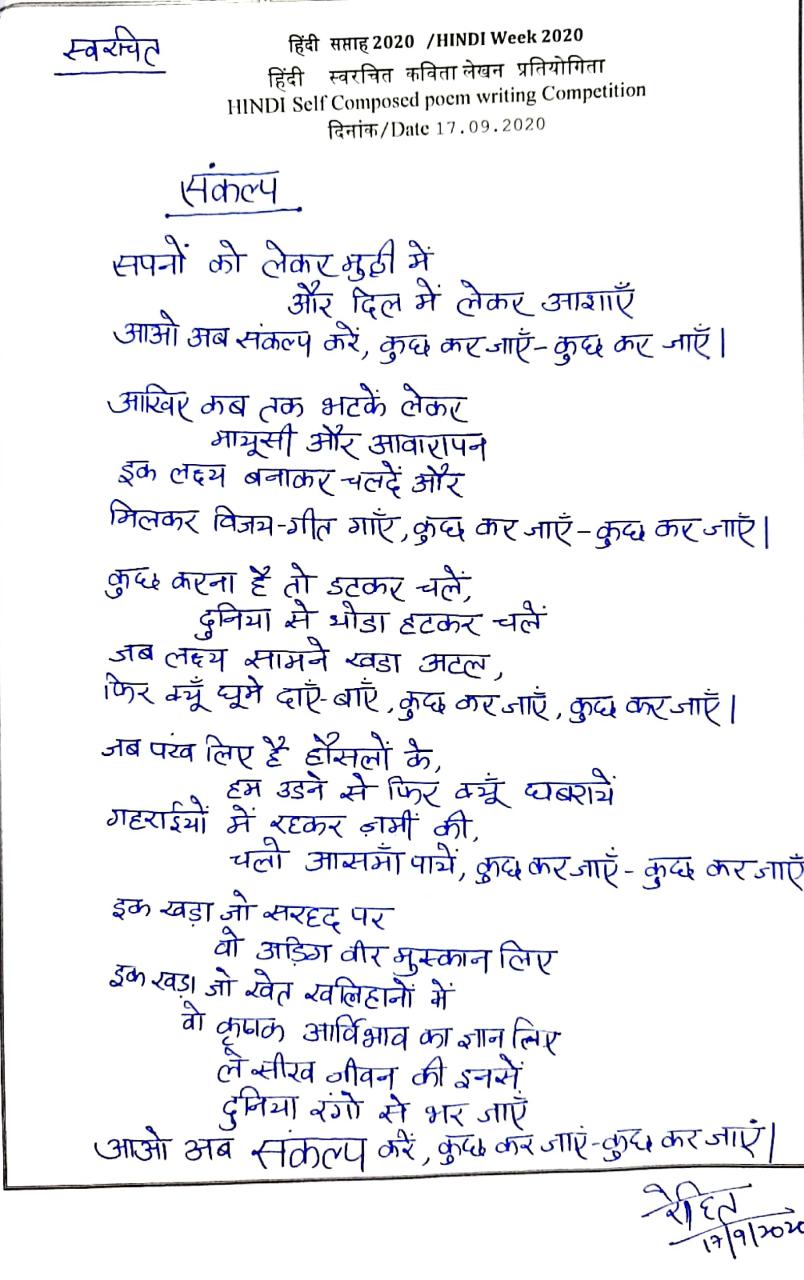 स्वरचित
हिंदी सप्ताह 2020 /HINDI Week 2020
हिंदी स्वरचित कविता लेखन प्रतियोगिता
HINDI Self Composed poem writing Competition
दिनांक/Date 17.09.2020
संकल्प
सपनों को लेकर मुठ्ठी में
और दिल में लेकर आशाएँ
आओ अब संकल्प करें, कुछ कर जाएँ-कुछ कर जाएँ।
आखिर कब तक भटकें लेकर
मायूसी और आवारापन
इक लक्ष्य बनाकर चलदें और
मिलकर विजय-गीत गाएँ, कुछ कर जाएँ-कुछ कर जाएँ।
कुछ करना है तो डटकर चलें,
दुनिया से थोडा हटकर चलें
जब लक्ष्य सामने खडा अटल,
फिर क्यूँ घूमे दाएँ-बाएँ, कुछ कर जाएँ, कुछ कर जाएँ।
जब पंख लिए है हौसलों के,
हम उडने से फिर क्यूँ घबरायें
गहराईयों में रहकर ज़मीं की,
चलो आसमाँ पायें, कुछ कर जाएँ- कुछ कर जाएँ
इक खड़ा जो सरहद पर
वो अड़िग वीर मुस्कान लिए
इक खड़ा जो खेत खलिहानों में
वो कृषक आर्विभाव का ज्ञान लिए
ले सीख जीवन की इनसें
दुनिया रंगो से भर जाएँ
आओ अब संकल्प करें, कुछ कर जाएं-कुछ कर जाएं।
रोहित
17/9/2020